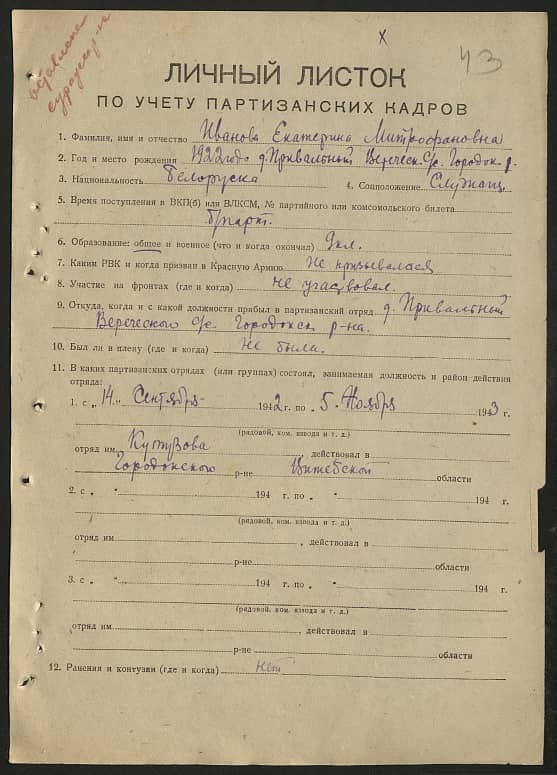 х
43
ЛИЧНЫЙ ЛИСТОК
ПО УЧЕТУ ПАРТИЗАНСКИХ КАДРОВ
1. Фамилия, имя и отчество Иванова Екатерина Митрофановна
2. Год и место рождения 1922 года д. Привальный Вереческ. С/с. Городок. р-
3. Национальность Белоруска 4. Соцположение Служащ.
5. Время поступления в ВКП(б) или ВЛКСМ, № партийного или комсомольского билета
б/парт.
6. Образование: общее и военное (что и когда окончил) 9кл.
7. Каким РВК и когда призван в Красную Армию Не призывалася
8. Участие на фронтах (где и когда) Не участвовал.
9. Откуда, когда и с какой должности прибыл в партизанский отряд д. Привальный
Вереческого с/с. Городокск. р-на.
10. Был ли в плену (где и когда) Не была.
11. В каких партизанских отрядах (или группах) состоял, занимаемая должность и район действия
отряда:
1. с „ 14 „ Сентября 1942 г. по „ 5 „ Ноября 1943 г.
(рядовой, ком. взвода и т. д.)
отряд им Кутузова , действовал в
Городокского р-не Витебской области
2. с „ " 194 г. по „ " 194 г.
(рядовой, ком. взвода и т. д.)
отряд им , действовал в
р-не области
3. с „ " 194 г. по „ " 194 г.
(рядовой, ком. взвода и т. д.)
отряд им , действовал в
р-не области
12. Ранения и контузии (где и когда) Нет